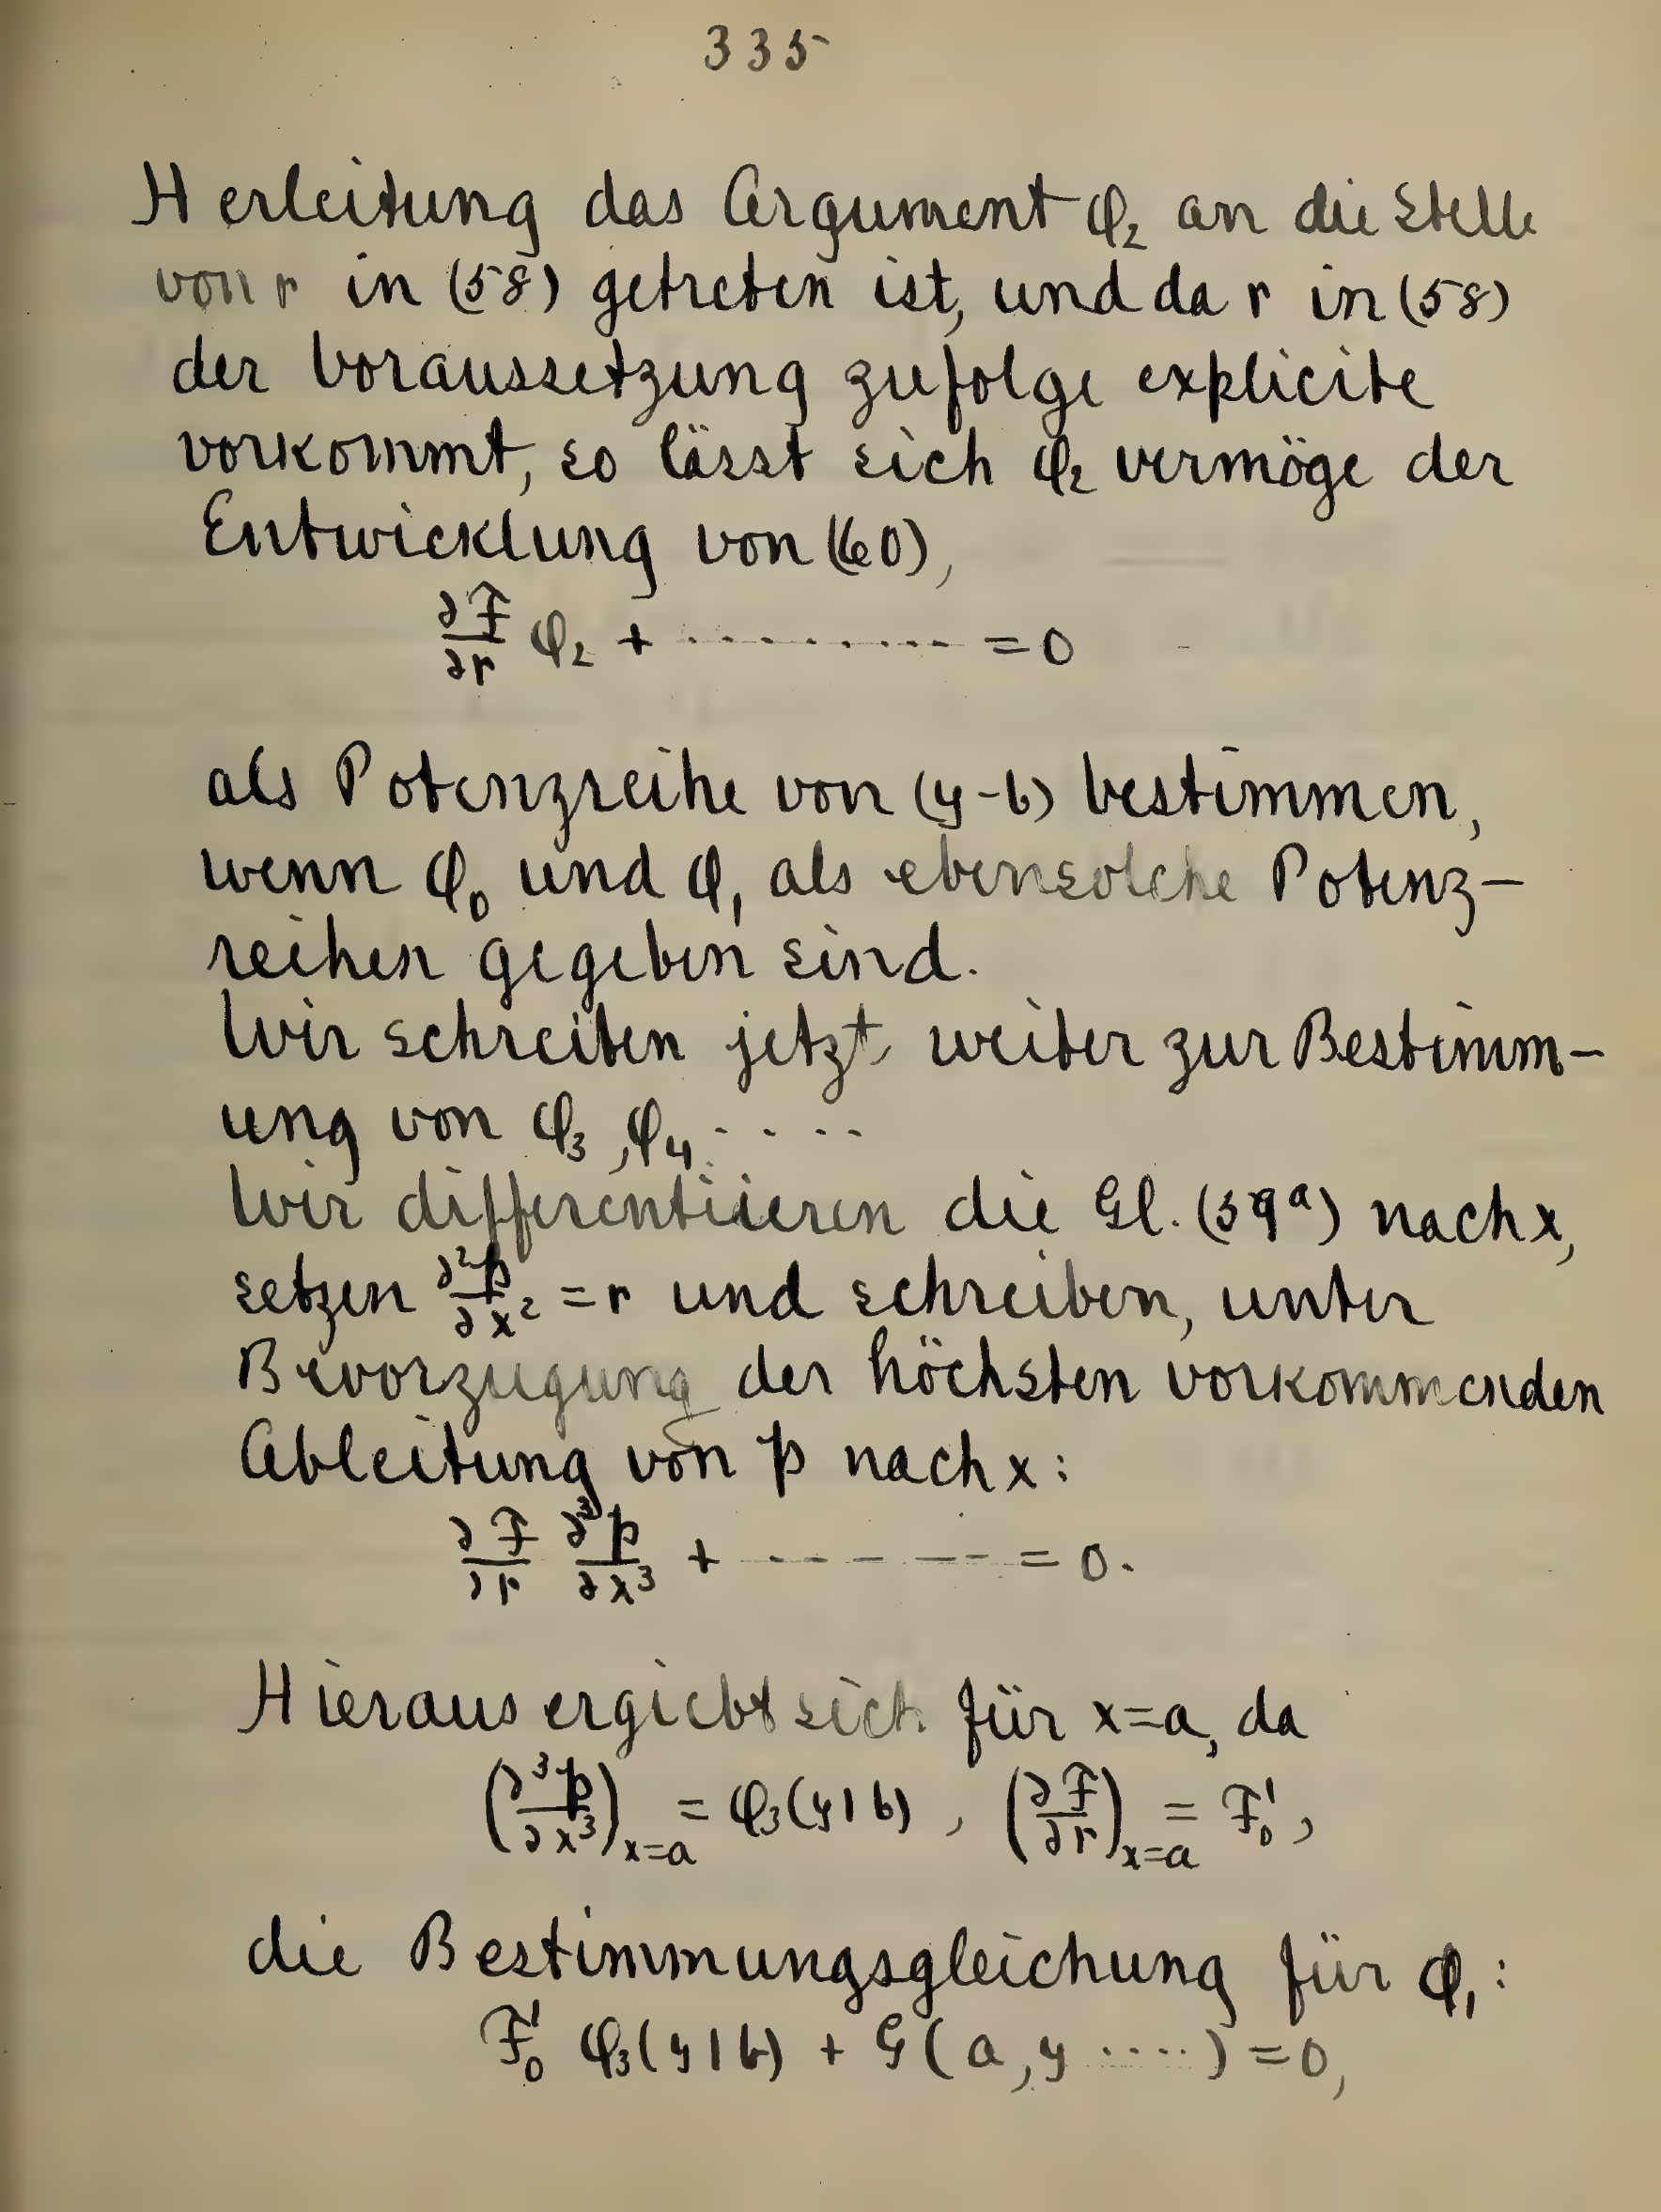 335
Herleitung das Argument φ₂ an die Stelle
von r in (58) getreten ist, und da r in (58)
der Voraussetzung zufolge explicite
vorkommt, so lässt sich φ₂ vermöge der
Entwicklung von (60),
∂F/∂r φ₂ + ......... = 0
als Potenzreihe von (y-b) bestimmen,
wenn φ₀ und φ₁ als ebensolche Potenz-
reihen gegeben sind.
Wir schreiten jetzt weiter zur Bestimm-
ung von φ₃, φ₄ ....
Wir differentiieren die Gl. (59ᵃ) nach x,
setzen ∂²p/∂x² = r und schreiben, unter
Bevorzugung der höchsten vorkommenden
Ableitung von p nach x:
∂F/∂r ∂³p/∂x³ + ------- = 0.
Hieraus ergiebt sich für x=a, da
(∂³p/∂x³)ₓ₌ₐ = φ₃(y|b), (∂F/∂r)ₓ₌ₐ = F₀',
die Bestimmungsgleichung für φ₁:
F₀' φ₃(y|b) + G(a,y ....) = 0,